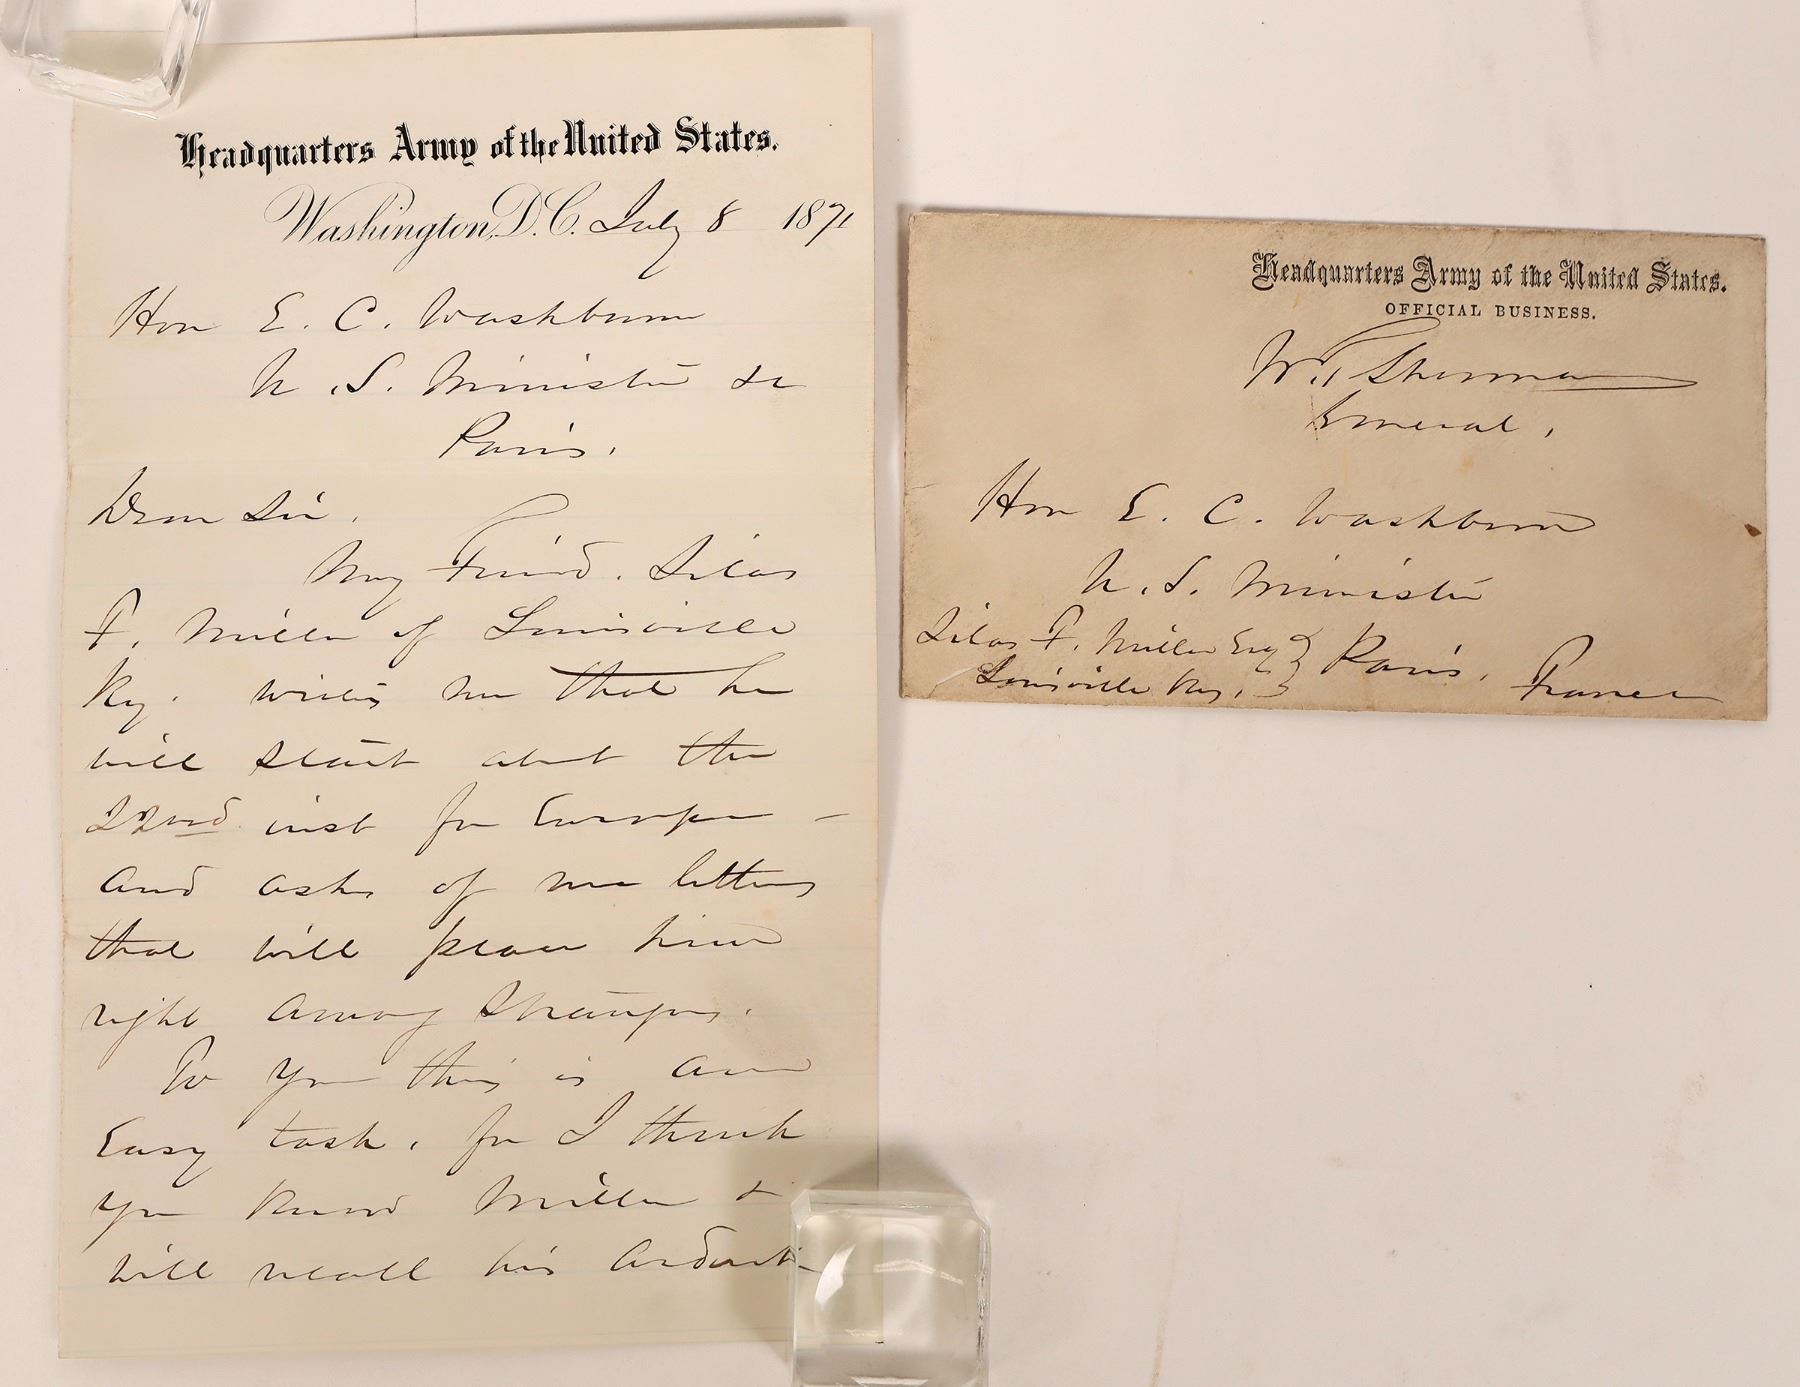 Headquarters Army of the United States.
Washington, D.C. July 8 1871
Hon E. C. Washburne
U.S. Minister &c
Paris.
Dear Sir.
My Friend. Silas
F. Miller of Louisville
Ky. writes me that he
will start about the
22nd inst for Europe –
and asks of me letters
that will place him
right among Strangers.
To you this is an
Easy task, for I think
you know Miller &
will recall his ardent
Headquarters Army of the United States.
OFFICIAL BUSINESS.
W. T. Sherman
General.
Hon E. C. Washburne
U.S. Minister
Paris, France
Silas F. Miller Esq
Louisville Ky.